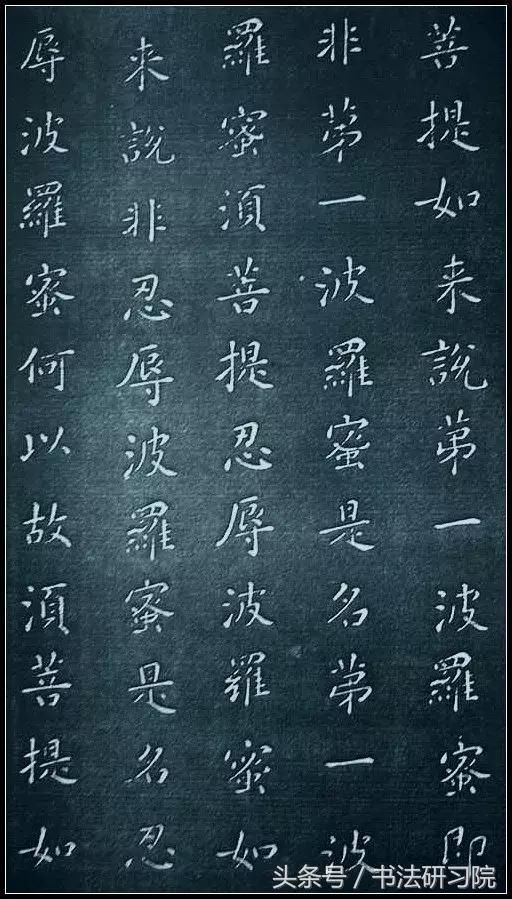 菩提如来說苐一波羅蜜即
非苐一波羅蜜是名苐一波
羅蜜湏菩提忍辱波羅蜜如
来說非忍辱波羅蜜是名忍
辱波羅蜜何以故湏菩提如
头条号/书法研习院